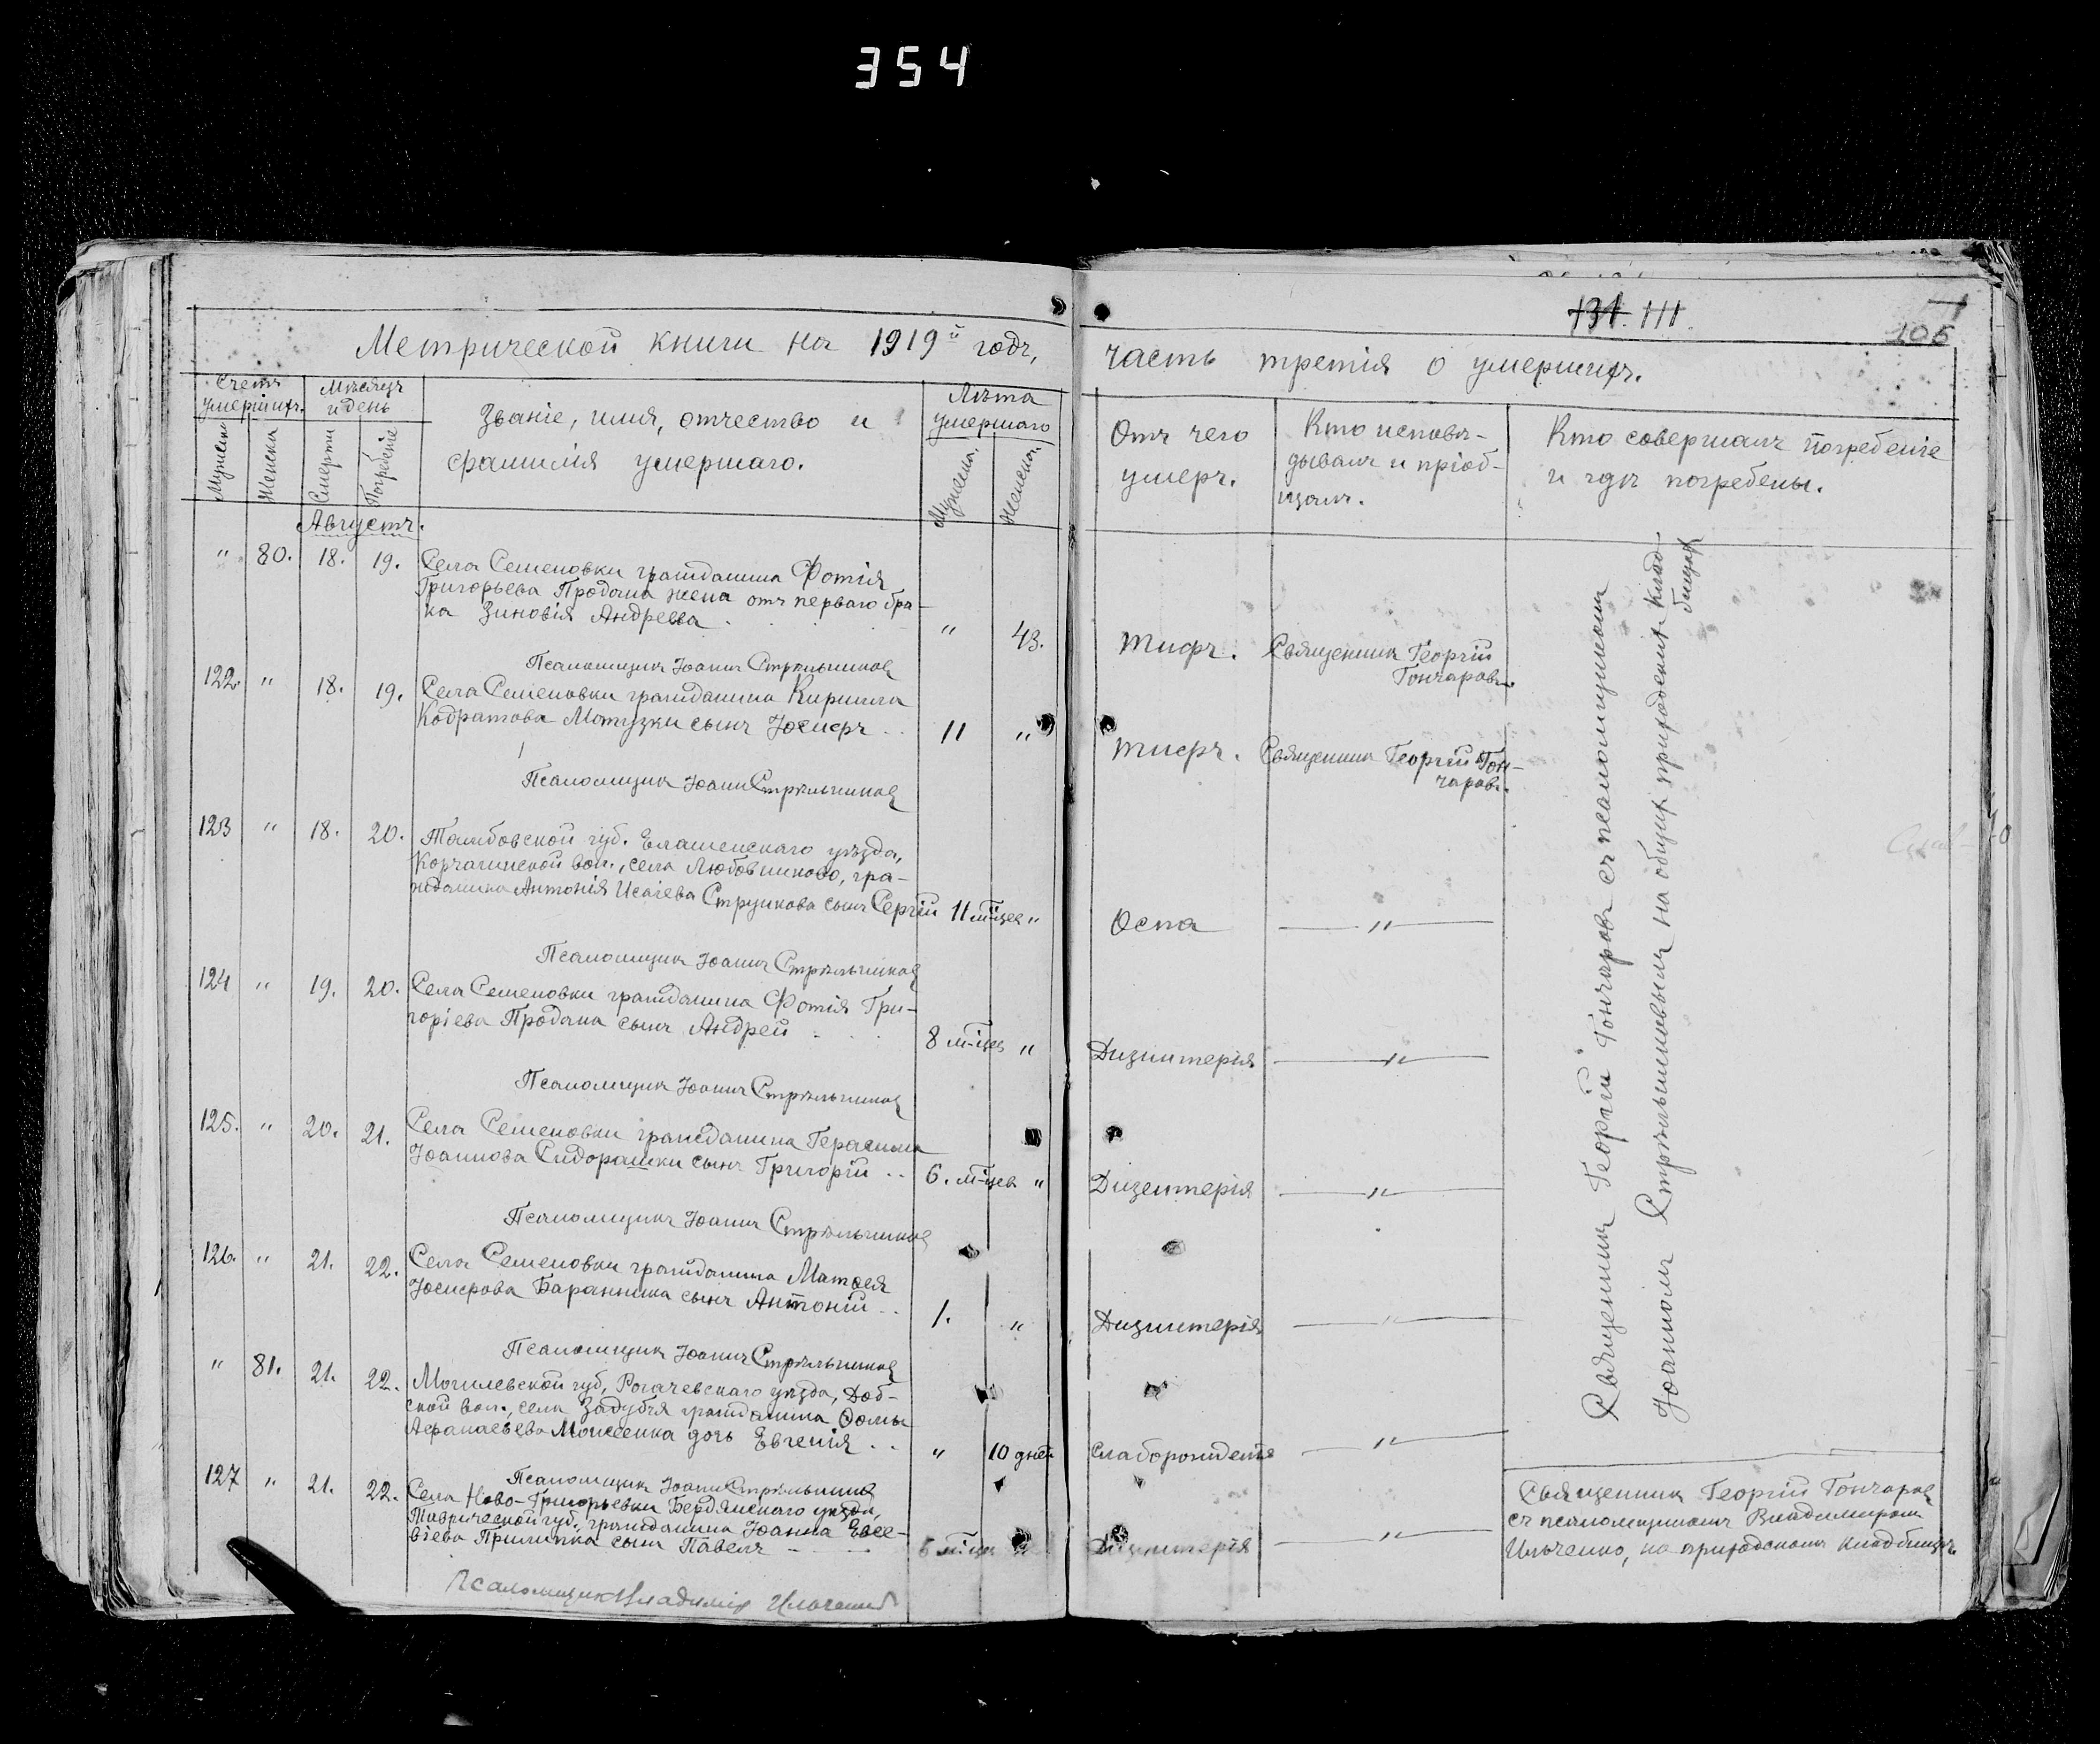 354
131. 111.
106
Метрической книги на 1919й годъ,
часть третія о умершихъ.
Счетъ умершихъ.
Мужеска
Женска
Мѣсяцъ и день
Смерти
Погребенія
Званіе, имя, отчество и
фамилія умершаго.
Лѣта умершаго
Мужеска.
Женска.
Отъ чего
умеръ.
Кто исповѣ-
дывалъ и пріоб-
щалъ.
Кто совершалъ погребеніе
и гдѣ погребены.
Августъ.
" 80. 18. 19. Села Семеновки гражданина Фотія
Григорьева Продана жена отъ перваго бра-
ка Зиновія Андреева . " 43. Тифъ. Священникъ Георгій
Гончаровъ.
Псаломщикъ Іоаннъ Стрѣльниковъ
122. " 18. 19. Села Семеновки гражданина Кирилла
Кодратова Мотузки сынъ Іосифъ . . 11 " Тифъ. Священникъ Георгій Гон-
чаровъ.
Псаломщикъ Іоаннъ Стрѣльниковъ
123 " 18. 20. Тамбовской губ. Елатенскаго уѣзда,
Корчагинской вол., села Любовниково, гра-
жданина Антонія Исаіева Струкова сынъ Сергій 11 м-цев " Оспа — " —
Псаломщикъ Іоаннъ Стрѣльниковъ
124 " 19. 20. Села Семеновки гражданина Фотія Гри-
горіева Продана сынъ Андрей . 8 м-цев " Дизинтерія — " —
Псаломщикъ Іоаннъ Стрѣльниковъ
125. " 20. 21. Села Семеновки гражданина Герасима
Іоаннова Сидорашки сынъ Григорій . . 6. м-цев " Дизентерія — " —
Псаломщикъ Іоаннъ Стрѣльниковъ
126. " 21. 22. Села Семеновки гражданина Матѳея
Іосифова Баранника сынъ Антоній . . 1. " Дизинтерія — " —
Псаломщикъ Іоаннъ Стрѣльниковъ
" 81. 21. 22. Могилевской губ, Рогачевскаго уѣзда, Доб-
ской вол., села Задубья гражданина Ѳомы
Афанасьева Моисеенка дочь Евгенія . . " 10 дней Слаборожденія — " —
Псаломщикъ Іоаннъ Стрѣльниковъ
127 " 21. 22. Села Ново-Григорьевки Бердянскаго уѣзда,
Таврической губ., гражданина Іоанна Евсе-
віева Прилипка сынъ Павелъ 6 м-цев " Дизинтерія — " —
Псаломщикъ Владимір Ильченко
Священникъ Георгій Гончаровъ съ псаломщикомъ
Іоанномъ Стрѣльниковымъ на общихъ приходскихъ клад-
бищахъ
Священникъ Георгій Гончаровъ
съ псаломщикомъ Владиміромъ
Ильченко, на приходскомъ кладбищѣ.